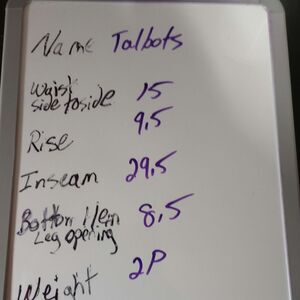 Name Talbots
Waist
side to side 15
9.5
Rise
Inseam 29.5
Bottom Hem 8.5
Leg opening
Weight 2P